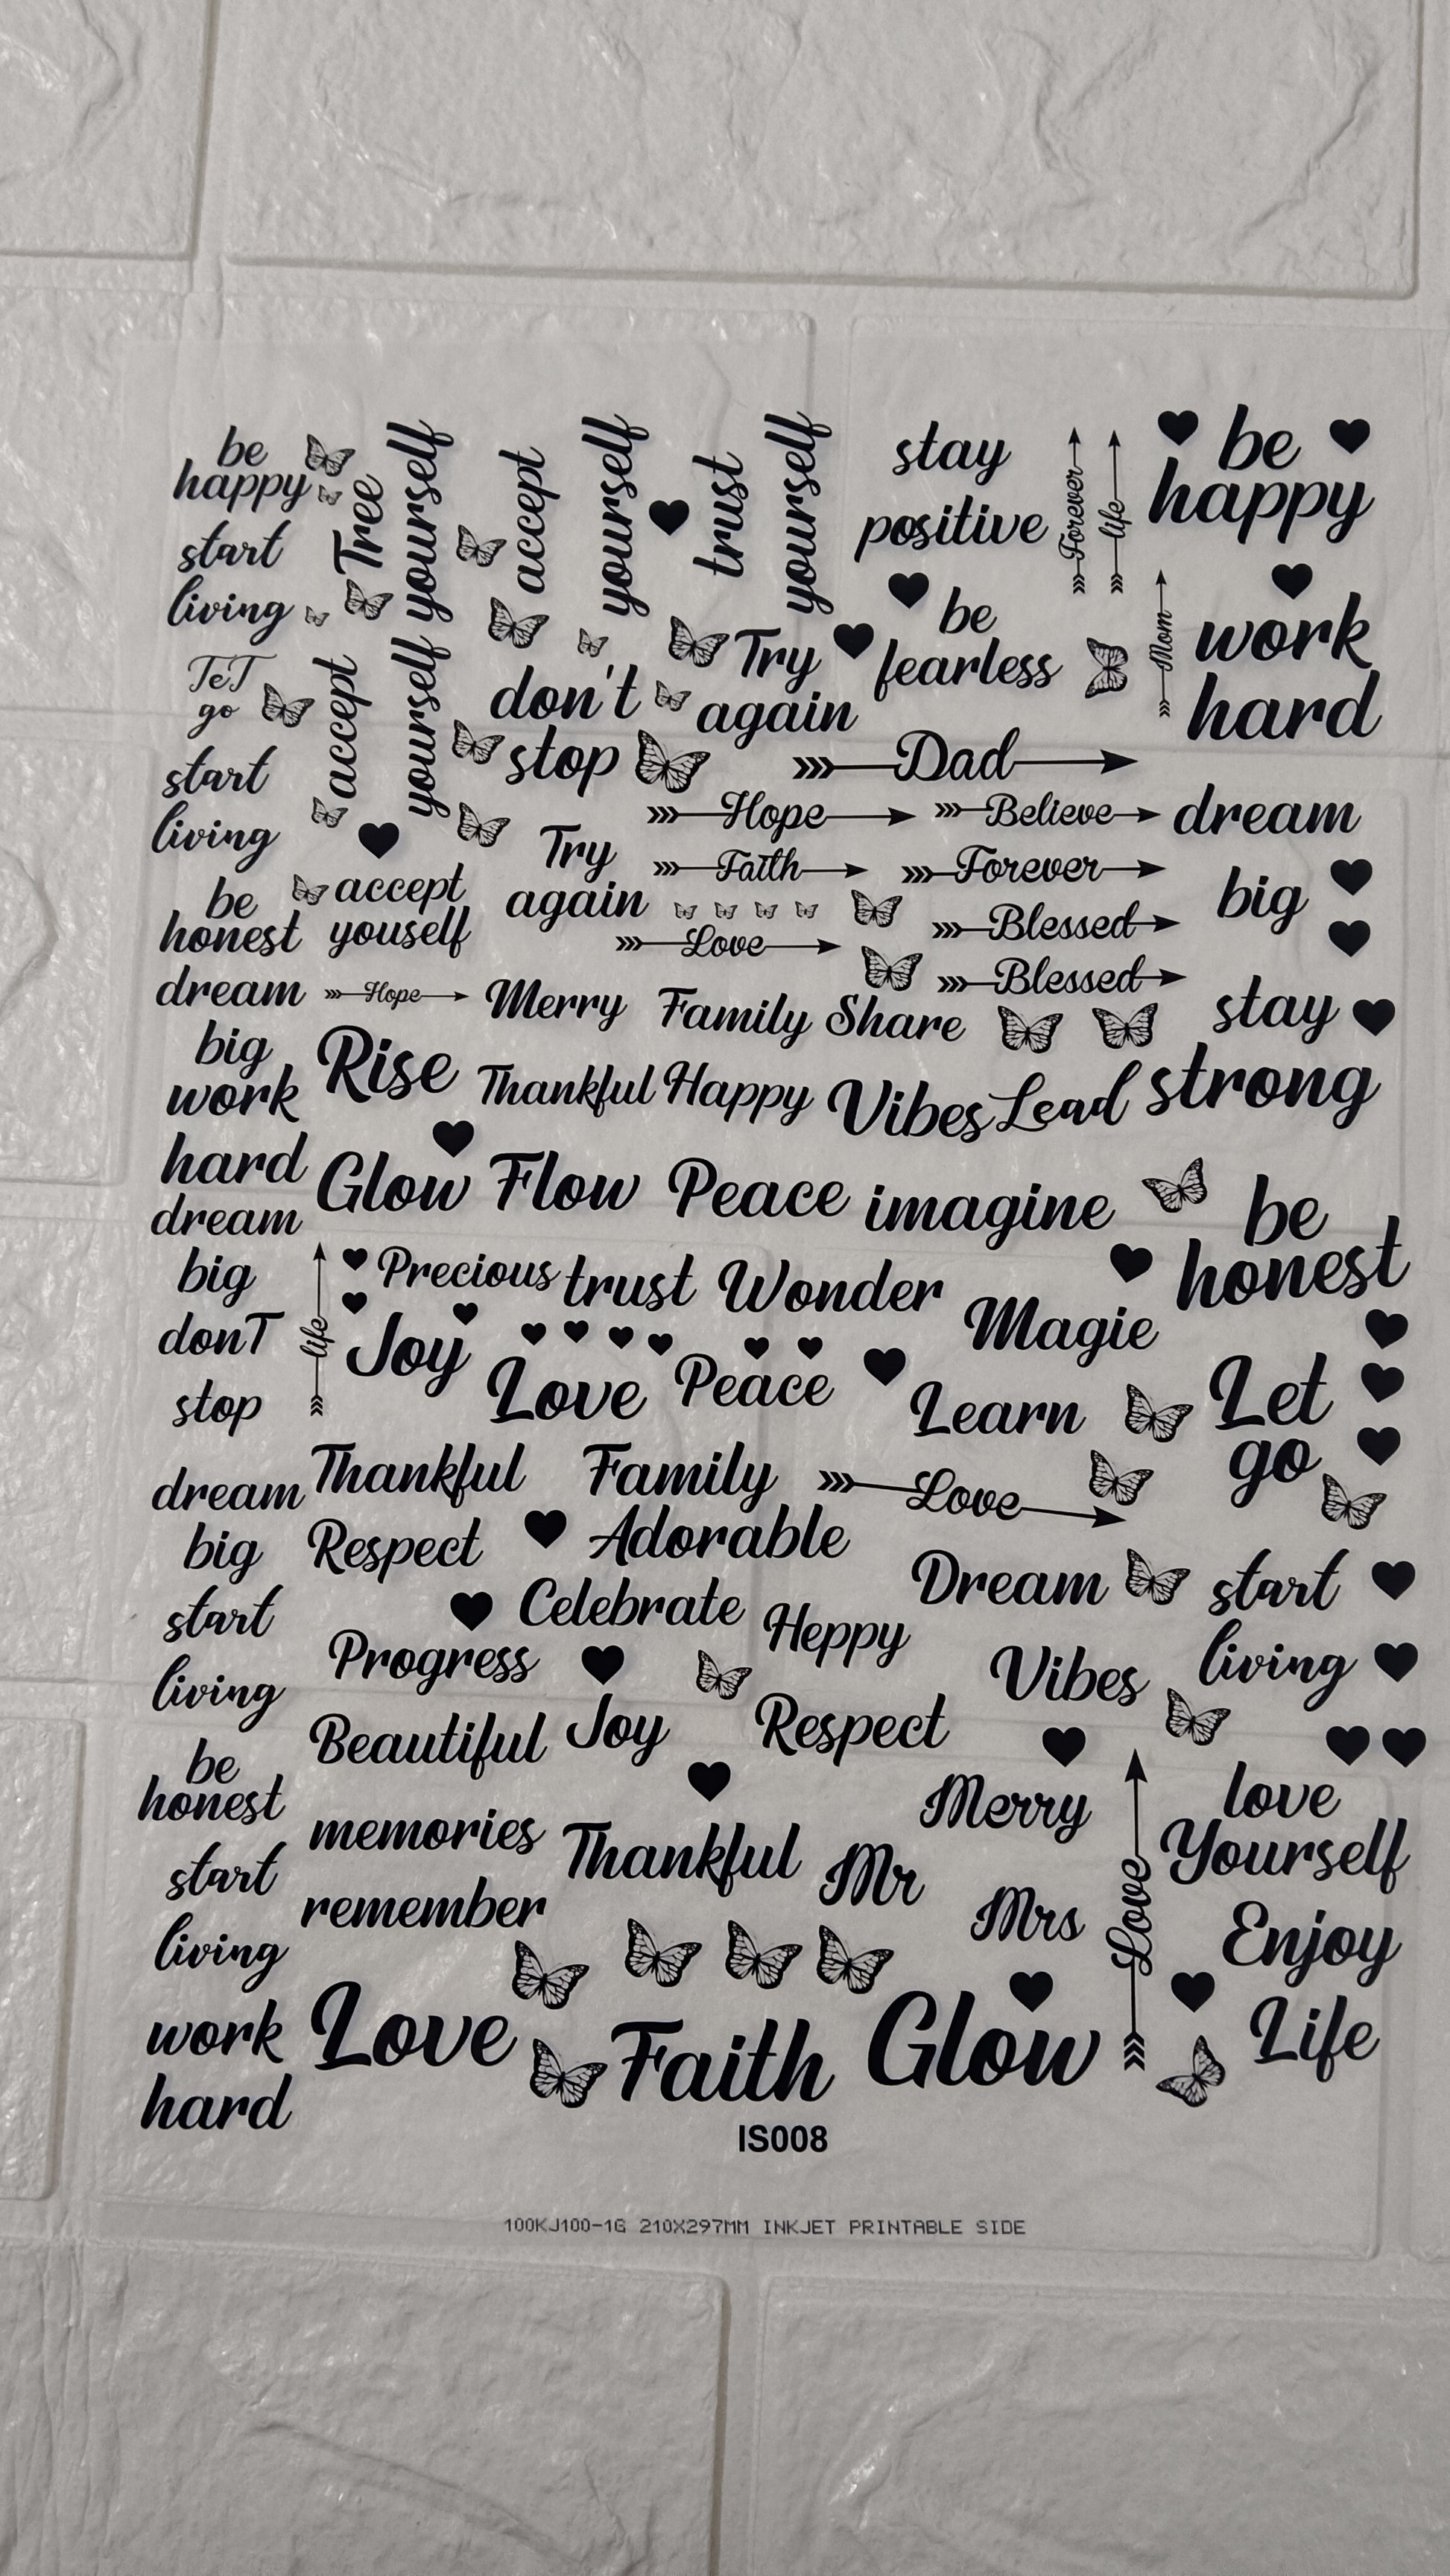 be
happy
start
living
TeT
go
start
living
be
honest
dream
big
work
hard
dream
big
donT
stop
dream
big
start
living
be
honest
start
living
work
hard
Tree
yourself
accept
yourself
accept
youself
Hope
accept
yourself
trust
yourself
don't
stop
Try
again
Try
again
stay
positive
be
fearless
Forever
life
Mom
be
happy
work
hard
Dad
Hope
Believe
Faith
Forever
Love
Blessed
Blessed
dream
big
stay
strong
Merry
Family
Share
Rise
Thankful
Happy
Vibes
Lead
Glow
Flow
Peace
imagine
be
honest
life
Precious
trust
Wonder
Magie
Joy
Love
Peace
Learn
Let
go
Thankful
Family
Love
Respect
Adorable
Dream
start
living
Celebrate
Heppy
Progress
Vibes
Beautiful
Joy
Respect
Merry
love
Yourself
memories
Thankful
Mr
Mrs
Love
Enjoy
Life
remember
Love
Faith
Glow
IS008
100KJ100-1G 210X297MM INKJET PRINTABLE SIDE